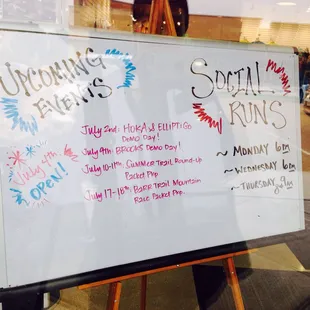 UPCOMING
EVENTS
July 4th
OPEN!
July 2nd: HOKA & ELLIPTIGO
Demo Day!
July 9th: BROOKS Demo Day!
July 10-11th: Summer Trail Round-Up
Packet PKP
July 17-18th: Barr Trail Mountain
Race Packet PKP
SOCIAL
RUNS
~ MONDAY 6pm
~ WEDNESDAY 6pm
~ THURSDAY